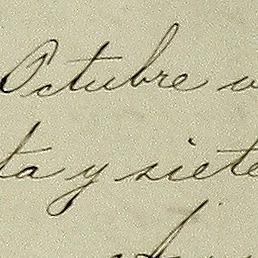 Octubre
ta y siete